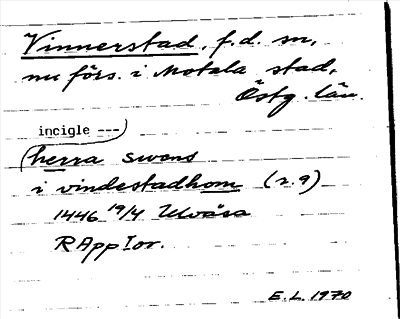 Vinnerstad, f.d. sn,
nu förs. i Motala stad,
Östg. län.
incigle ---
(herra swens
i vindestadhom (r. 9)
1446 19/4 Ulvåsa
RAppIor.
E.L. 1970